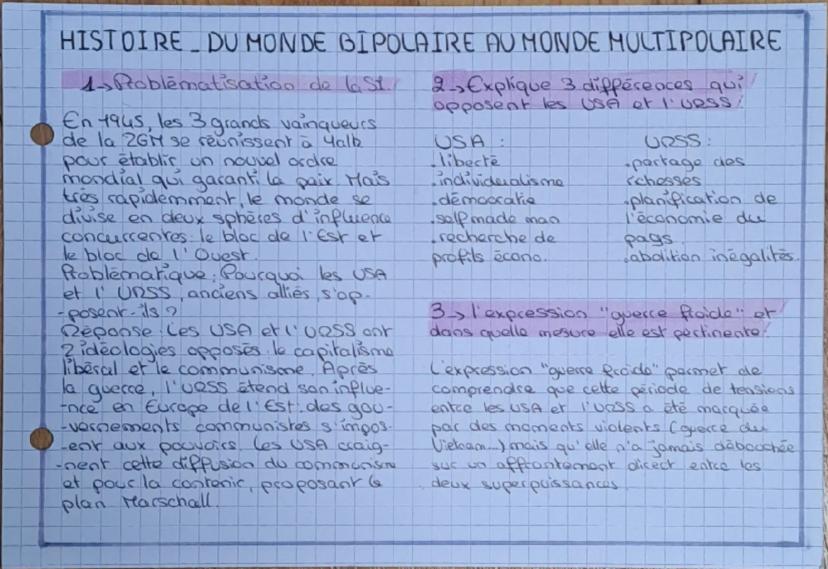 HISTOIRE_DU MONDE BIPOLAIRE AU MONDE MULTIPOLAIRE
1→Problématisation de la S1.
En 1945, les 3 grands vainqueurs
de la 2GM se réunissent à Yalb
pour établir un nouvel ordre
mondial qui garanti la paix Mais
très rapidemment, le monde se
divise en deux sphères d'influence
concurrentes: le bloc de l'Est et
le bloc de l'Ouest.
Problématique: Pourquoi les USA
et l'URSS, anciens alliés, s'op-
-posent-ils?
Réponse: Les USA et l'URSS ont
2 idéologies opposés: le capitalisme
libéral et le communisme. Après
la guerre, l'URSS étend son influe-
-nce en Europe de l'Est: des gou-
-vernements communistes s'impos-
-ent aux pouvoirs. Les USA craig-
-nent cette diffusion du communisme
et pour la contenir, proposant le
plan Marschall.
2→Explique 3 différences qui
opposent les USA et l'URSS:
USA:
.liberté
.individualisme
.démocratie
.self made man
.recherche de
profits écono.
URSS:
.partage des
richesses
.planification de
l'économie du
pays.
.abolition inégalités.
3→l'expression "guerre froide" et
dans quelle mesure elle est pertinente.
L'expression "guerre froide" permet de
comprendre que cette période de tensions
entre les USA et l'URSS a été marquée
par des moments violents (guerre du
Vietnam...) mais qu'elle n'a jamais débouchée
sur un affrontement direct entre les
deux superpuissances.